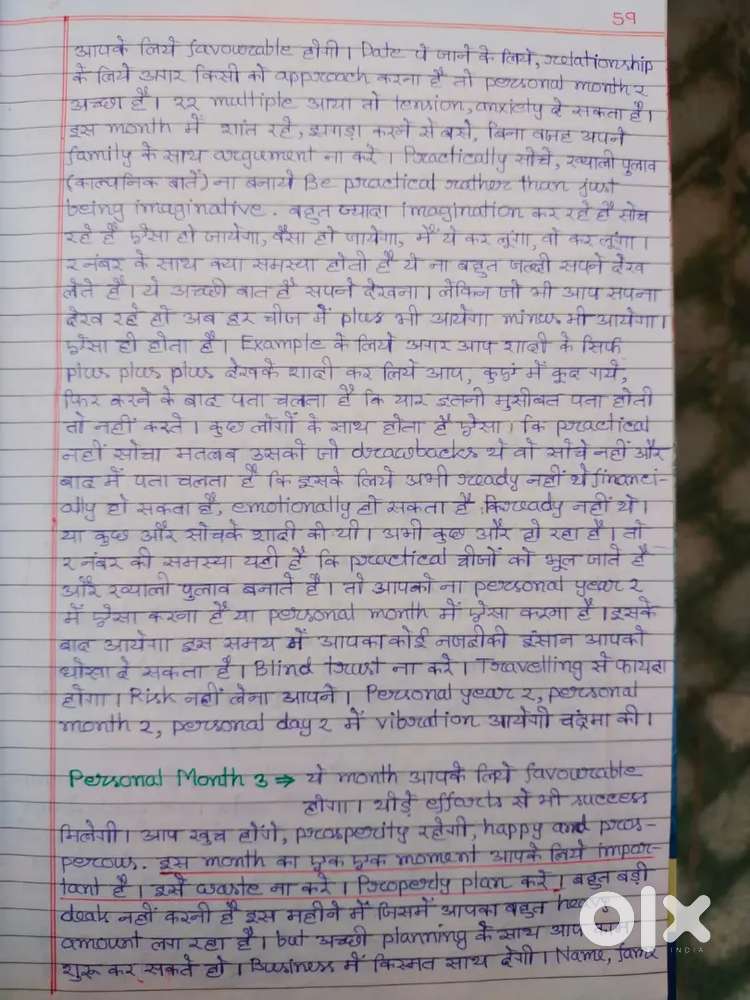 59
आपके लिये favourable होगी। Date पे जाने के लिये, relationship
के लिये अगर किसी को approach करना है तो personal month 2
अच्छा है। 22 multiple आया तो tension, anxiety दे सकता है।
इस month में शांत रहे, झगड़ा करने से बचे, बिना वजह अपने
family के साथ argument ना करे। Practically सोचे, ख्याली पुलाव
(काल्पनिक बातें) ना बनाये Be practical rather than just
being imaginative. बहुत ज्यादा imagination कर रहे हैं सोच
रहे हैं ऐसा हो जायेगा, वैसा हो जायेगा, मैं ये कर लूंगा, वो कर लूंगा।
2 नंबर के साथ क्या समस्या होती है ये ना बहुत जल्दी सपने देख
लेते हैं। ये अच्छी बात है सपने देखना। लेकिन जो भी आप सपना
देख रहे हो अब हर चीज में plus भी आयेगा minus भी आयेगा।
ऐसा ही होता है। Example के लिये अगर आप शादी के सिर्फ
plus plus plus देखके शादी कर लिये आप, कुएं में कूद गये,
फिर करने के बाद पता चलता है कि यार इतनी मुसीबत पता होती
तो नहीं करते। कुछ लोगों के साथ होता है ऐसा। कि practical
नहीं सोचा मतलब उसको जो drawbacks थे वो सोचे नहीं और
बाद में पता चलता है कि इसके लिये अभी ready नहीं थे financi-
ally हो सकता है, emotionally हो सकता है कि ready नहीं थे।
या कुछ और सोचके शादी की थी। अभी कुछ और हो रहा है। तो
2 नंबर की समस्या यही है कि practical चीजों को भुल जाते है
और ख्याली पुलाव बनाते है। तो आपको ना personal year 2
में ऐसा करना है या personal month में ऐसा करना है। इसके
बाद आयेगा इस समय में आपका कोई नजदीकी इंसान आपको
धोखा दे सकता है। Blind trust ना करे। Travelling से फायदा
होगा। Risk नहीं लेना आपने। Personal year 2, personal
month 2, personal day 2 में vibration आयेगी चंद्रमा की।
Personal Month 3 ⇒ ये month आपके लिये favourable
होगा। थोड़े efforts से भी success
मिलेगी। आप खुश होंगे, prosperity रहेगी, happy and pros-
perous. इस month का एक एक moment आपके लिये impor-
tant है। इसे waste ना करे। Properly plan करे। बहुत बड़ी
deals नहीं करनी है इस महीने में जिसमें आपका बहुत heavy
amount लग रहा है। but अच्छी planning के साथ आप काम
शुरू कर सकते हो। Business में किस्मत साथ देगी। Name, fame
olx
INDIA